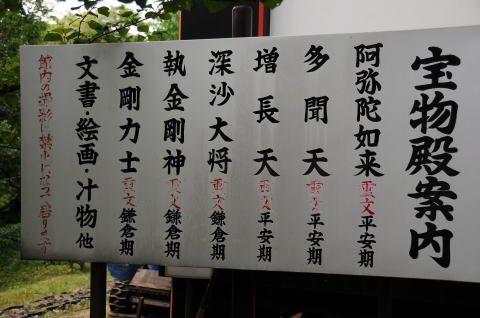 宝物殿案内
阿弥陀如来 重文 平安期
多聞天 重文 平安期
増長天 重文 平安期
深沙大将 重文 鎌倉期
執金剛神 重文 鎌倉期
金剛力士 重文 鎌倉期
文書・絵画・汁物他
館内の撮影は禁止になって居ります